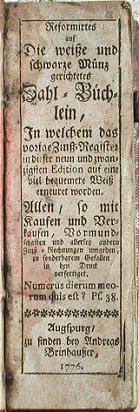 Reformirtes
auf
Die weiße und
schwarze Müntz
gerichtetes
Zahl-Büch-
lein,
In welchem das
vorige Zinß-Register
in dieser neun und zwan-
zigsten Edition auf eine
viel bequemere Weiß
erneuret worden.
Allen, so mit
Kaufen und Ver-
kaufen, Vormund-
schaften und allerley andern
Zinß-Rechnungen umgehen,
zu sonderbarem Gefallen
in den Druck
verfertiget.
Numerus dierum meo-
rum quis est? Ps. 38.
Augspurg/
zu finden bey Andreas
Brinhaußer,
1776.